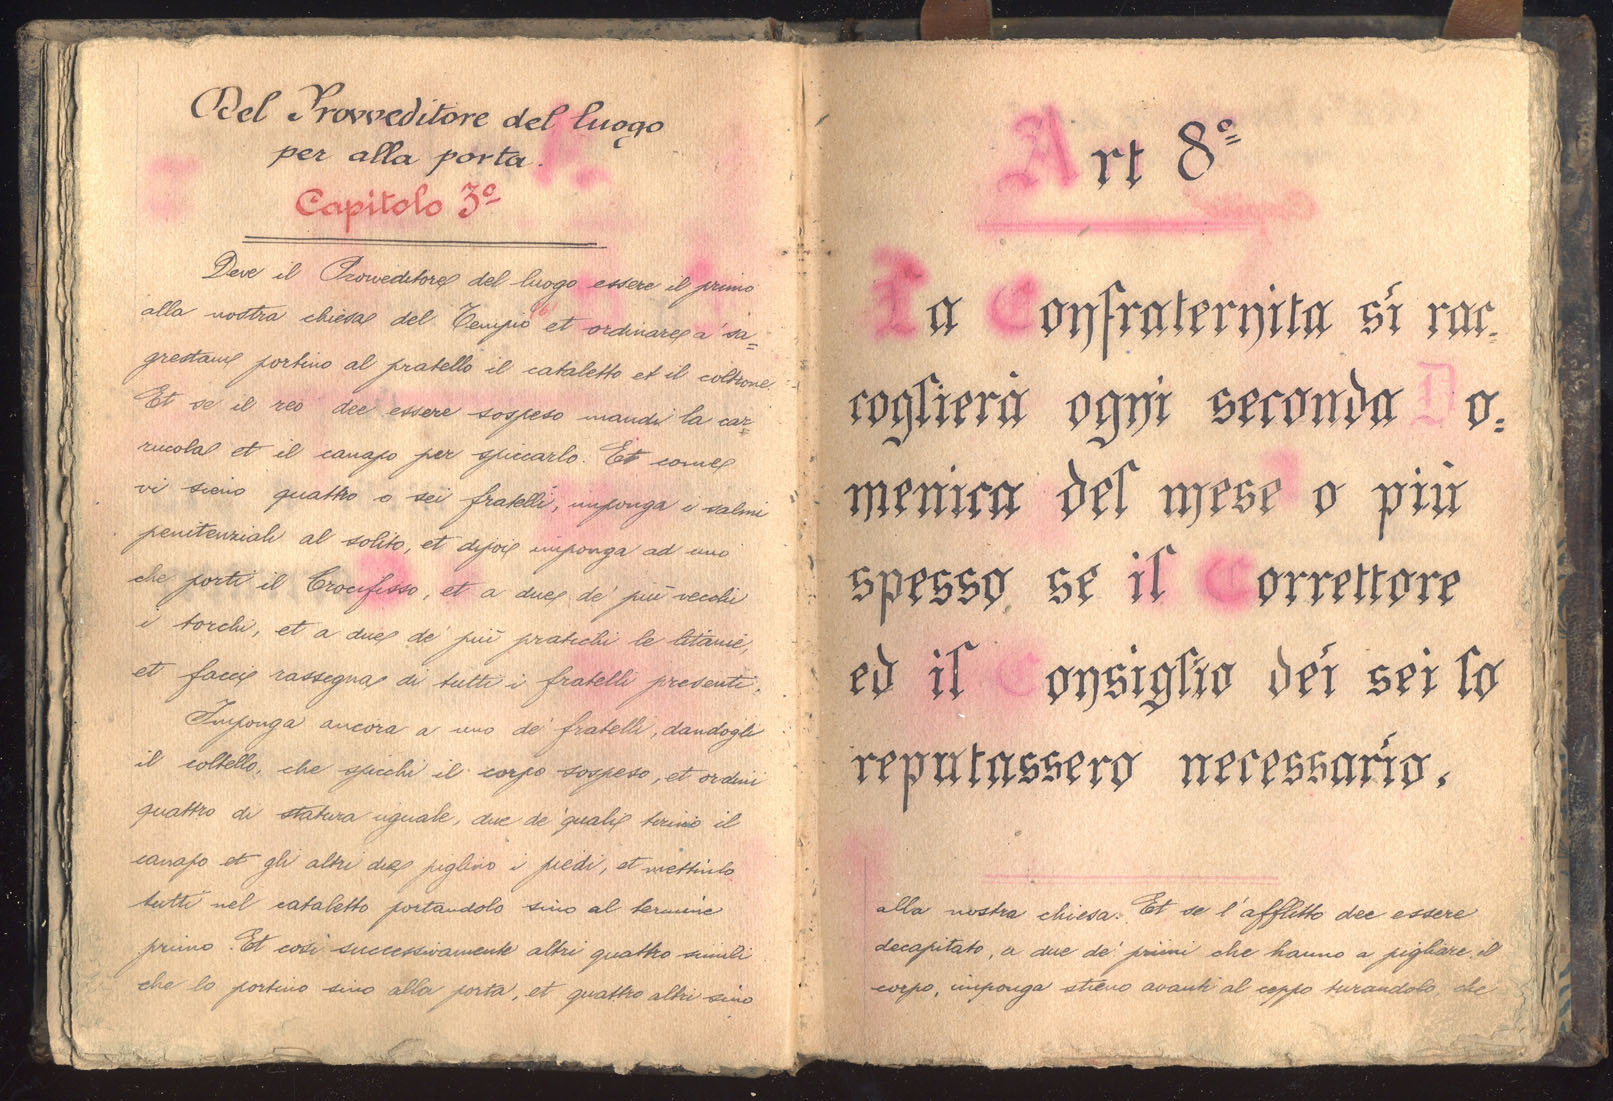 Del Provveditore del luogo
per alla porta.
Capitolo 3º
Deve il Provveditore del luogo essere il primo
alla nostra chiesa del Tempio et ordinare a' sa=
grestani portino al fratello il cataletto et il coltrone
Et se il reo dee essere sospeso mandi la car=
rucola et il canapo per spiccarlo. Et come
vi sieno quattro o sei fratelli, imponga i salmi
penitenziali al solito, et dipoi imponga ad uno
che porti il Crocifisso, et a due de' più vecchi
i torchi, et a due de' più pratichi le litanie,
et facci rassegna di tutti i fratelli presenti.
Imponga ancora a uno de' fratelli, dandogli
il coltello, che spicchi il corpo sospeso, et ordini
quattro di statura uguale, due de' quali tirino il
canapo et gli altri due piglino i piedi, et mettinlo
tutti nel cataletto portandolo sino al termine
primo. Et così successivamente altri quattro simili
che lo portino sino alla porta, et quattro altri sino
Art 8º
La Confraternita si rac=
coglierà ogni seconda Do=
menica del mese o più
spesso se il Correttore
ed il Consiglio dei sei lo
reputassero necessario.
alla nostra chiesa. Et se l'afflitto dee essere
decapitato, a due de' primi che hanno a pigliare il
corpo, imponga stieno avanti al ceppo turandolo, che